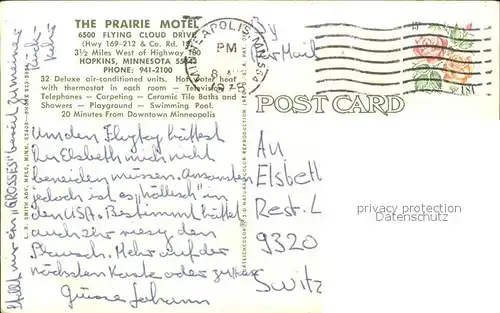 THE PRAIRIE MOTEL
6500 FLYING CLOUD DRIVE
(Hwy 169-212 & Co. Rd. 18)
3½ Miles West of Highway 100
HOPKINS, MINNESOTA 55343
PHONE: 941-2100
32 Deluxe air-conditioned units. Hot water heat
with thermostat in each room — Television —
Telephones — Carpeting — Ceramic Tile Baths and
Showers — Playground — Swimming Pool.
20 Minutes From Downtown Minneapolis
MINNEAPOLIS, MN 554
PM
By
Mail
15c
USA
POST CARD
Um den Flugtag hättest
Du Elsbeth mich nicht
beneiden müssen. Ansonsten
jedoch ist es "höllisch" in
den USA. Bestimmt hättet
auch Ihr riesig den
Plausch. Mehr auf der
nächsten Karte oder zuhause
Grüsse Johann
An
Elsbeth
Rest. L
9320
Switz
Stellt mir ein "GROSSES" bereit zu meiner
Rück-
kehr
privacy protection
Datenschutz